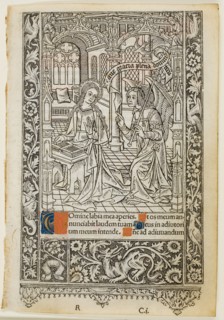 aue maria plena
Omine labia mea aperies. Et os meum an
nunciabit laudem tuam. Deus in adiutori
um meum intende. Domine ad adiuuandum
R C.i.